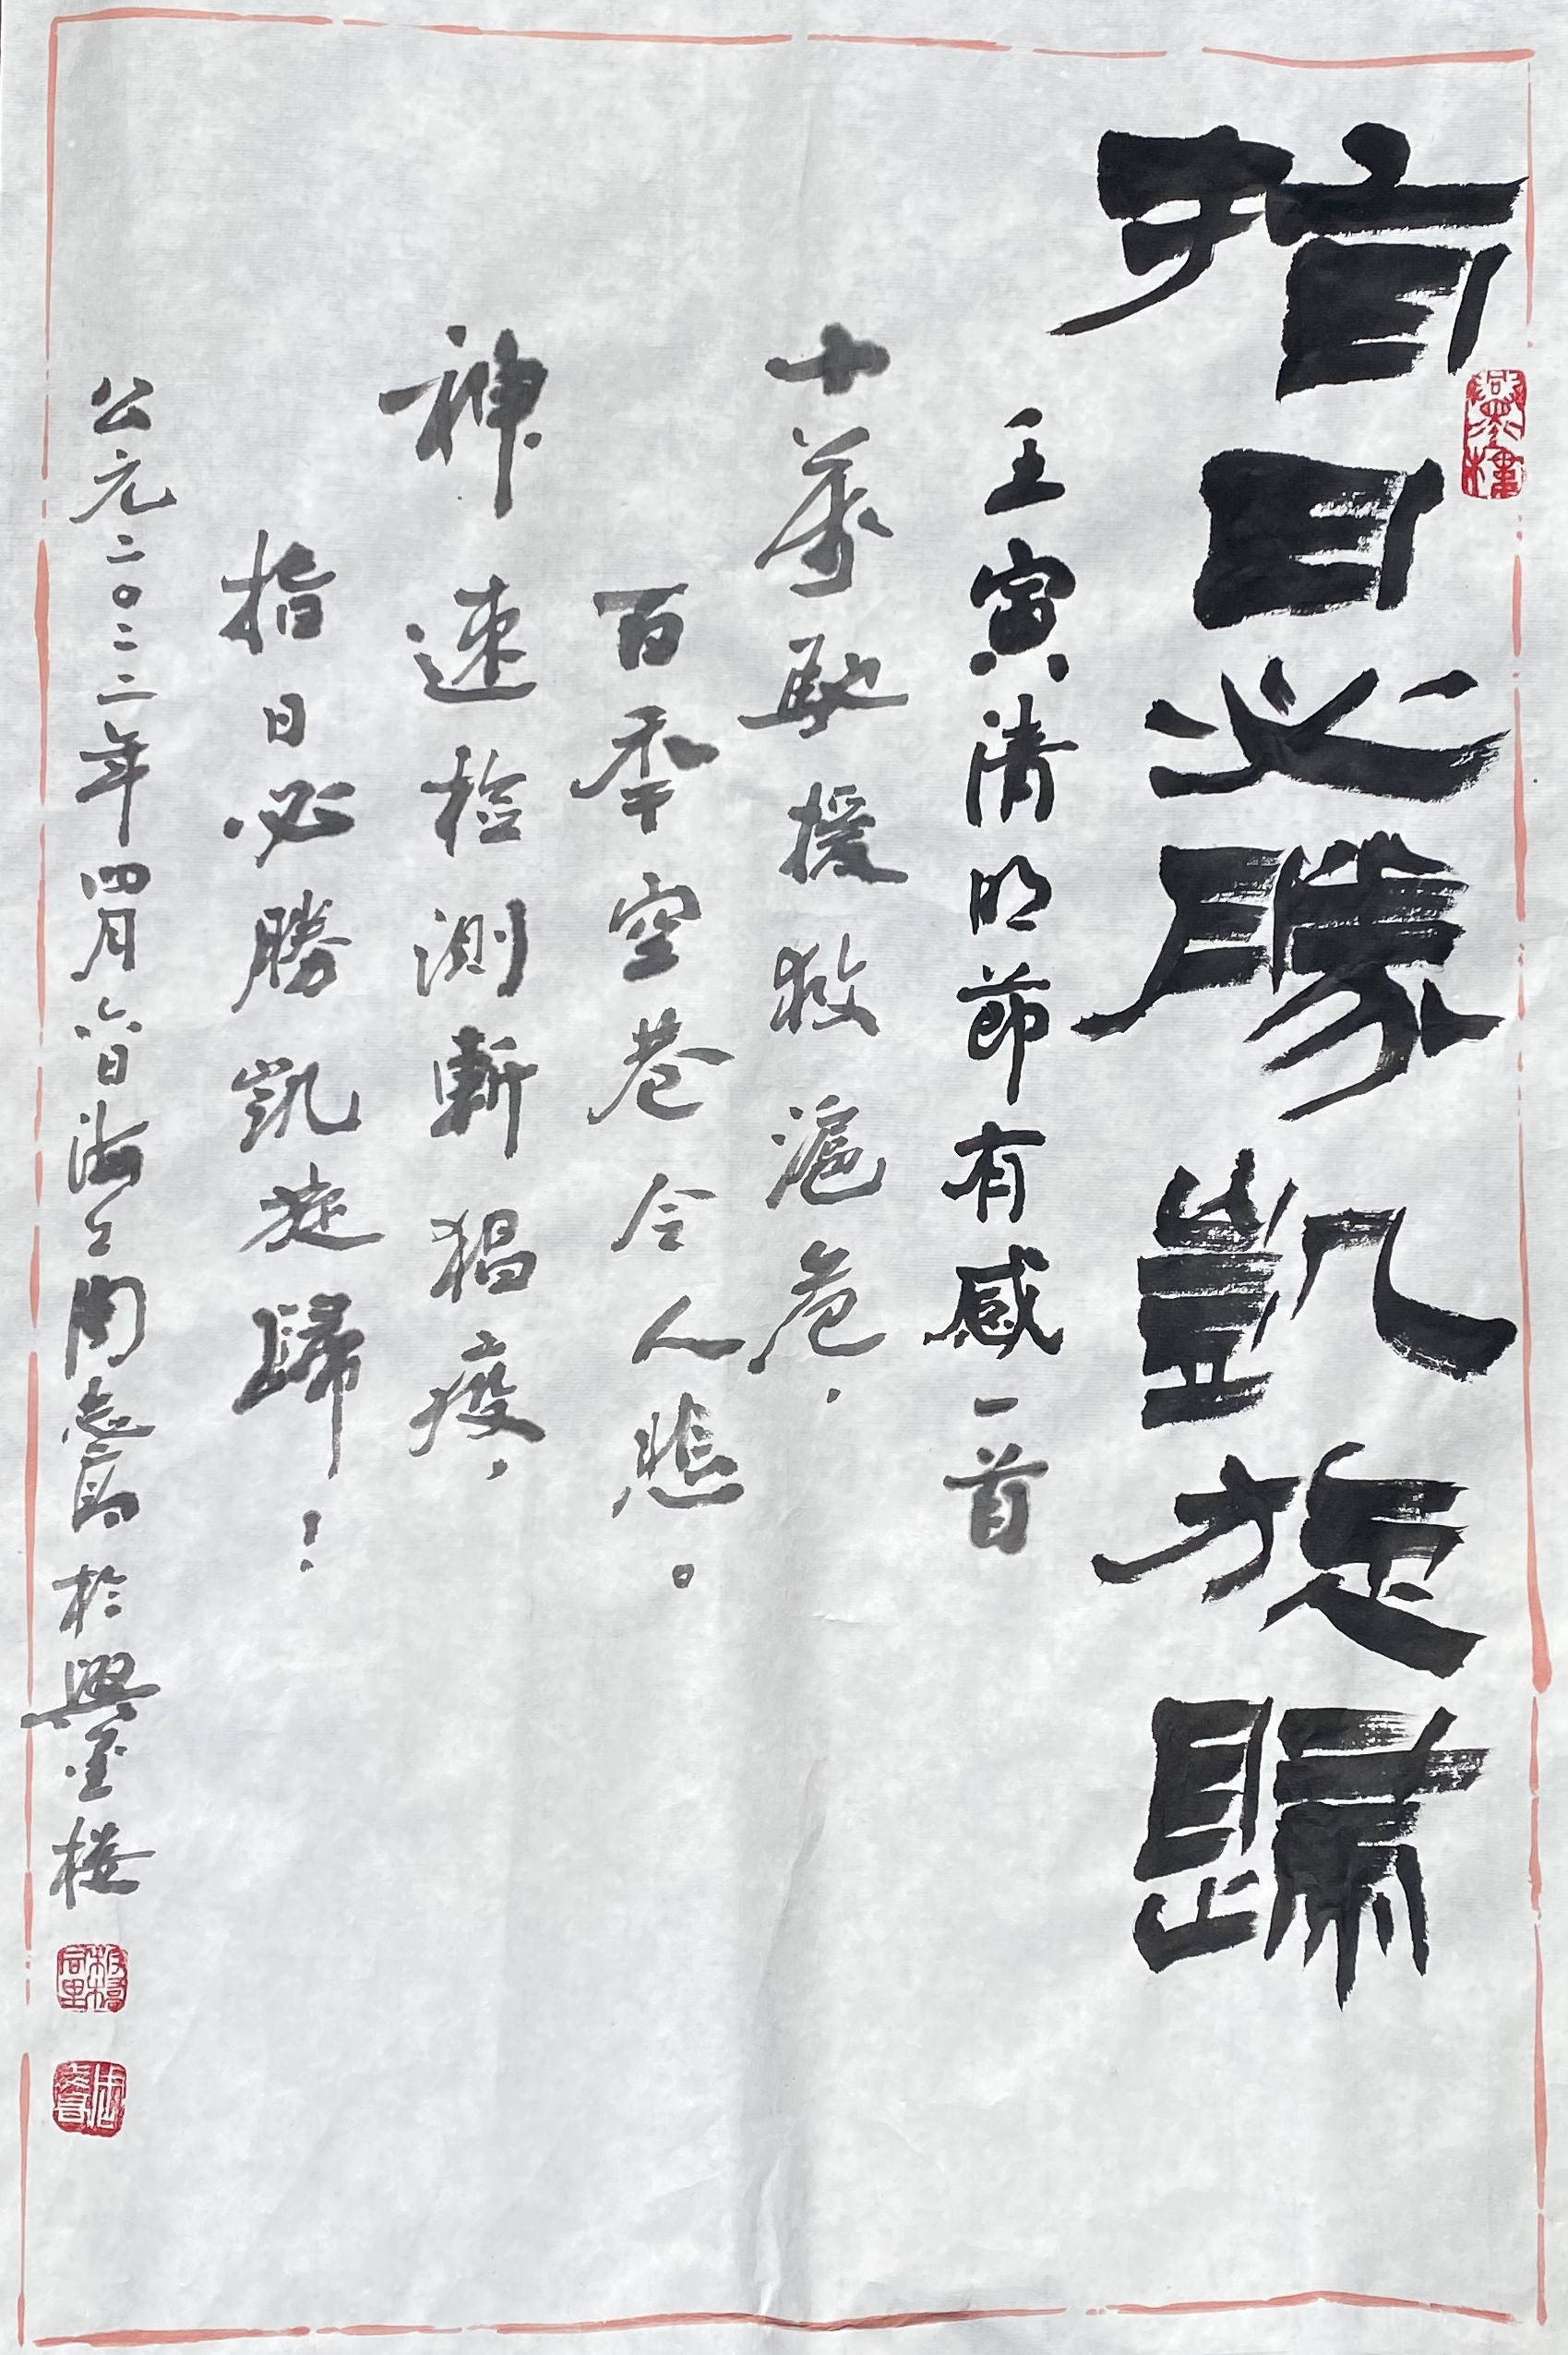 指日必勝凱旋歸
壬寅清明節有感一首
十萬馳援救滬危，
百秊空巷令人悲。
神速检測斬猖疫，
指日必勝凱旋歸！
公元二〇二二年四月六日海上周志高於興墨楼